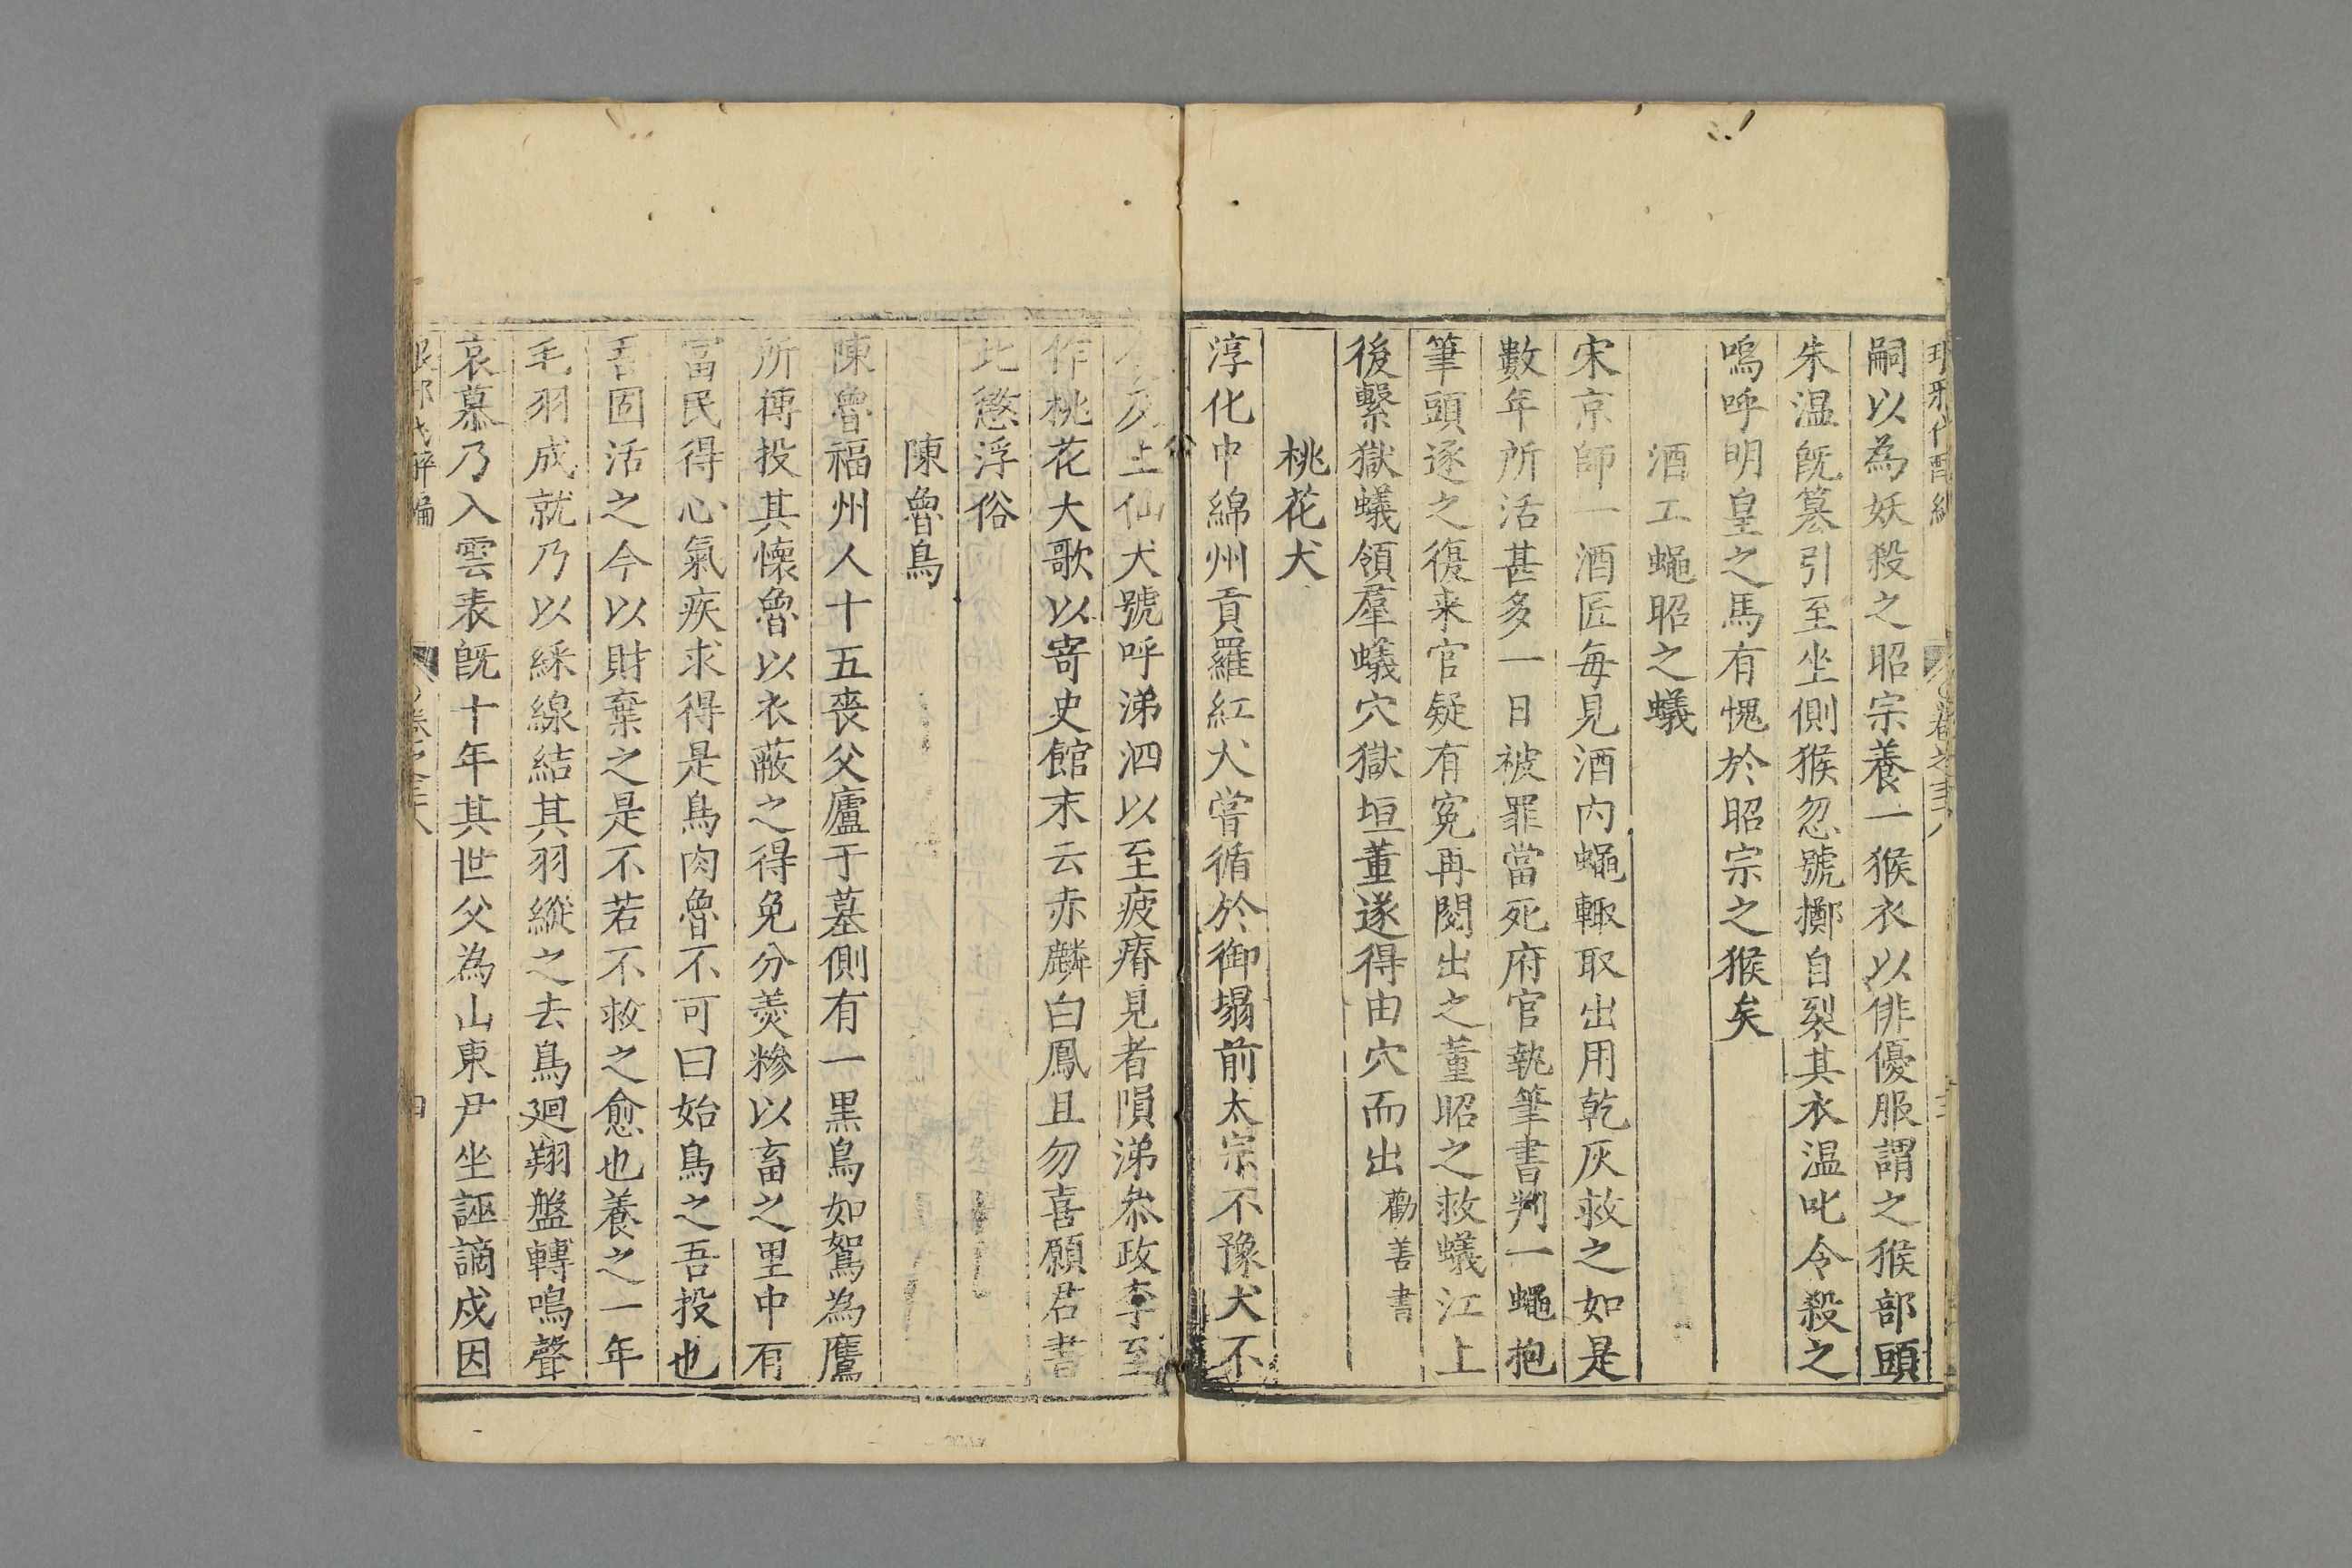 嗣以為妖殺之昭宗養一猴衣以俳優服謂之猴部頭
朱温旣簒引至坐側猴忽號擲自裂其衣温叱令殺之
嗚呼明皇之馬有愧於昭宗之猴矣
酒工蠅昭之蟻
宋京師一酒匠每見酒内蠅輙取出用乾灰救之如是
數年所活甚多一日被罪當死府官執筆書判一蠅抱
筆頭逐之復来官疑有寃再閱出之董昭之救蟻江上
後繫獄蟻領羣蟻穴獄垣董遂得由穴而出勸善書
桃花犬
淳化中綿州貢羅紅犬嘗循於御榻前太宗不豫犬不
上仙犬號呼涕泗以至疲瘠見者隕涕叅政李至
作桃花犬歌以寄史館末云赤麟白鳳且勿喜願君書
此懲浮俗
陳魯鳥
陳魯福州人十五喪父廬于墓側有一黒鳥如鴽為鷹
所摶投其懐魯以衣蔽之得免分羮糝以畜之里中有
冨民得心氣疾求得是鳥肉魯不可曰始鳥之吾投也
吾固活之今以財棄之是不若不救之愈也養之一年
毛羽成就乃以綵線結其羽縱之去鳥廻翔盤轉鳴聲
哀慕乃入雲表旣十年其世父為山東尹坐誣謫戍因